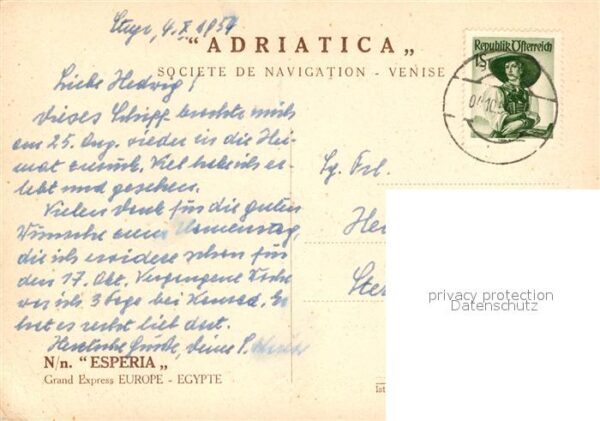 Steyr, 4. X. 1954
"ADRIATICA"
SOCIETE DE NAVIGATION - VENISE
Republik Österreich
1S
Liebe Hedwig!
Dieses Schiff brachte mich
am 25. Aug. wieder in die Hei-
mat zurück. Viel habe ich er-
lebt und gesehen.
Vielen Dank für die guten
Wünsche zum Namenstag,
die ich erwidere schon für
den 17. Okt. Vergangene Woche
war ich 3 Tage bei Konrad. Er
hat es recht lieb dort.
Herzliche Grüße, deine
N/n. "ESPERIA"
Grand Express EUROPE - EGYPTE
Frl.
privacy protection
Datenschutz